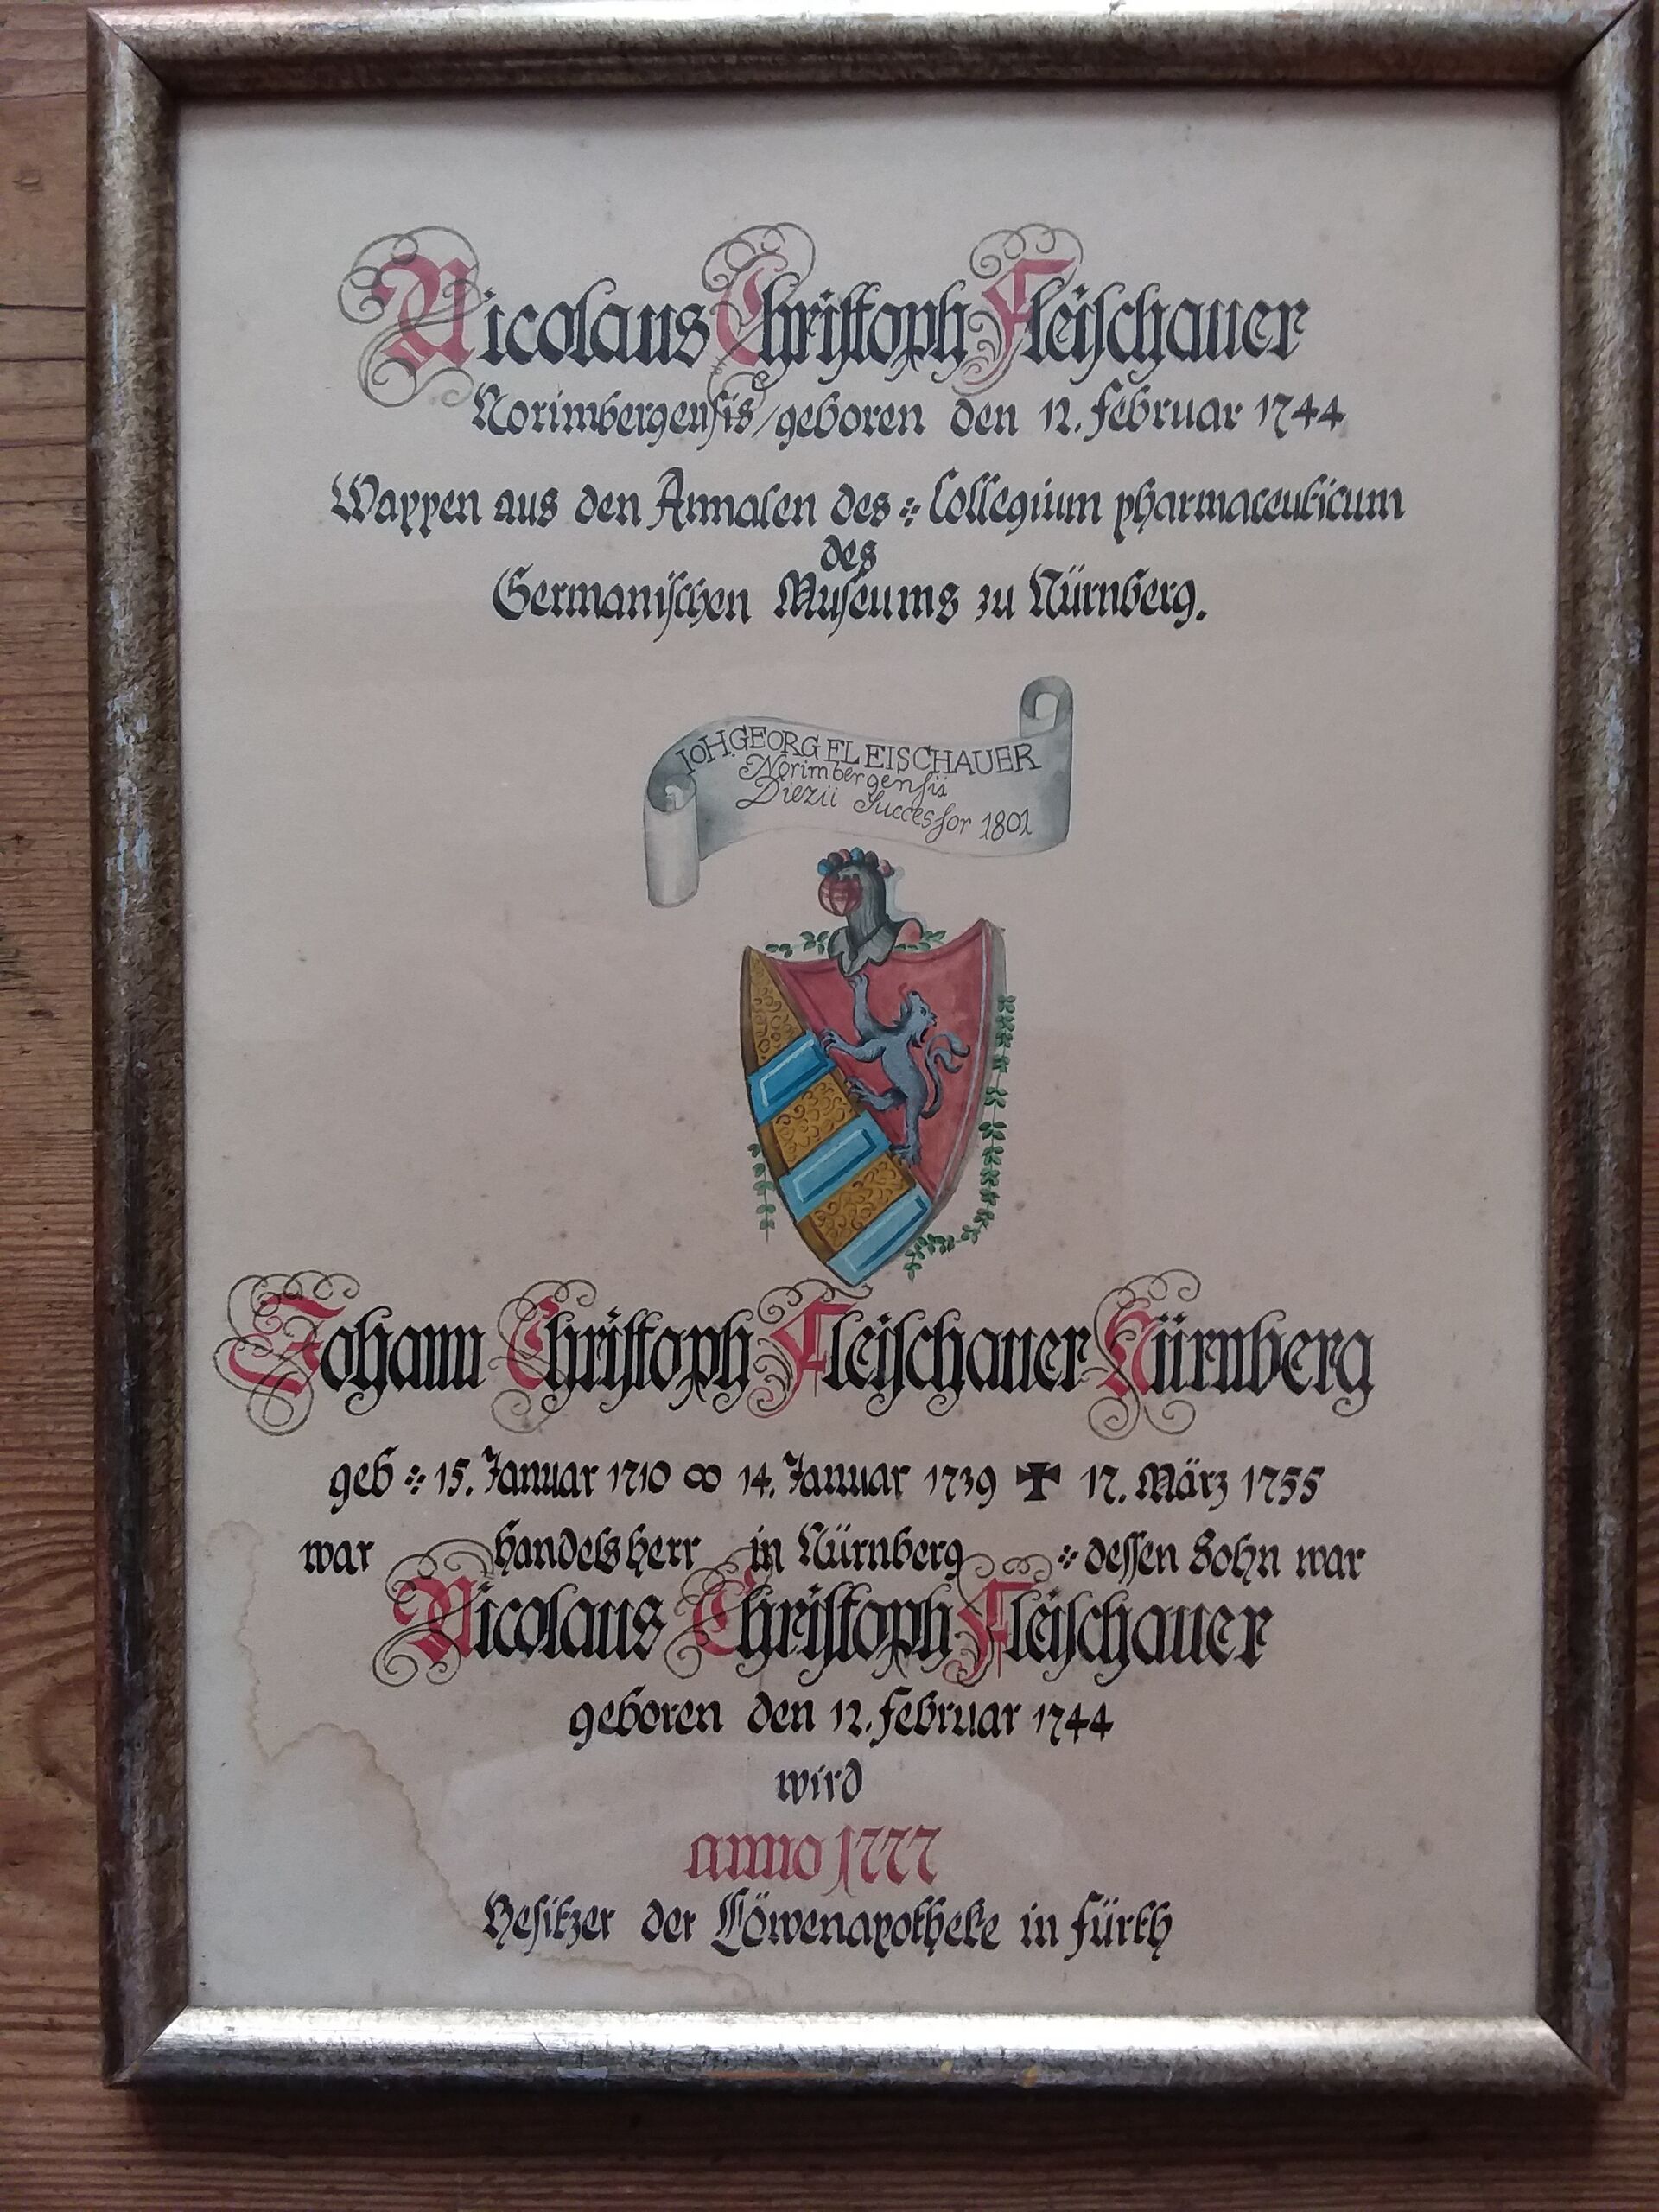 Nicolaus Christoph Fleischauer
Norimbergensis/geboren den 12. Februar 1744
Wappen aus den Annalen des : Collegium pharmaceuticum
des
Germanischen Museums zu Nürnberg.
IOH.GEORG FLEISCHAUER
Norimbergensis
Diezii Successor 1801
Johann Christoph Fleischauer Nürnberg
geb : 15. Januar 1710 ∞ 14. Januar 1739 ✠ 17. März 1755
war Handelsherr in Nürnberg : dessen Sohn war
Nicolaus Christoph Fleischauer
geboren den 12. Februar 1744
wird
anno 1777
Besitzer der Löwenapotheke in Fürth